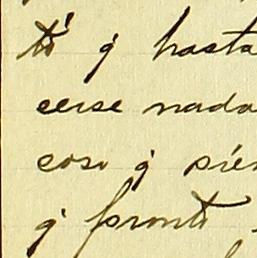 tó q hasta
cerse nada
coso q sié
q pronto